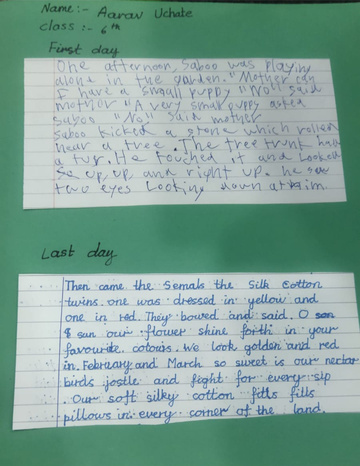 Name:- Aarav Uchate
class :- 6th
First day
One afternoon, Saboo was playing
alone in the garden. "Mother can
I have a small puppy "No" said
mother "A very small puppy asked
saboo "No" said mother
Saboo kicked a stone which rolled
near a tree. The tree trunk had
a fur. He touched it and looked
up up and right up. he saw
two eyes looking down at him.
Last day
Then came the Semals the Silk Cotton
twins. one was dressed in yellow and
one in red. They bowed and said. O
sun our flower shine forth in your
favourite colours. We look golden and red
in February and March so sweet is our nectar
birds jostle and fight for every sip
. Our soft silky cotton fills
pillows in every corner of the land.